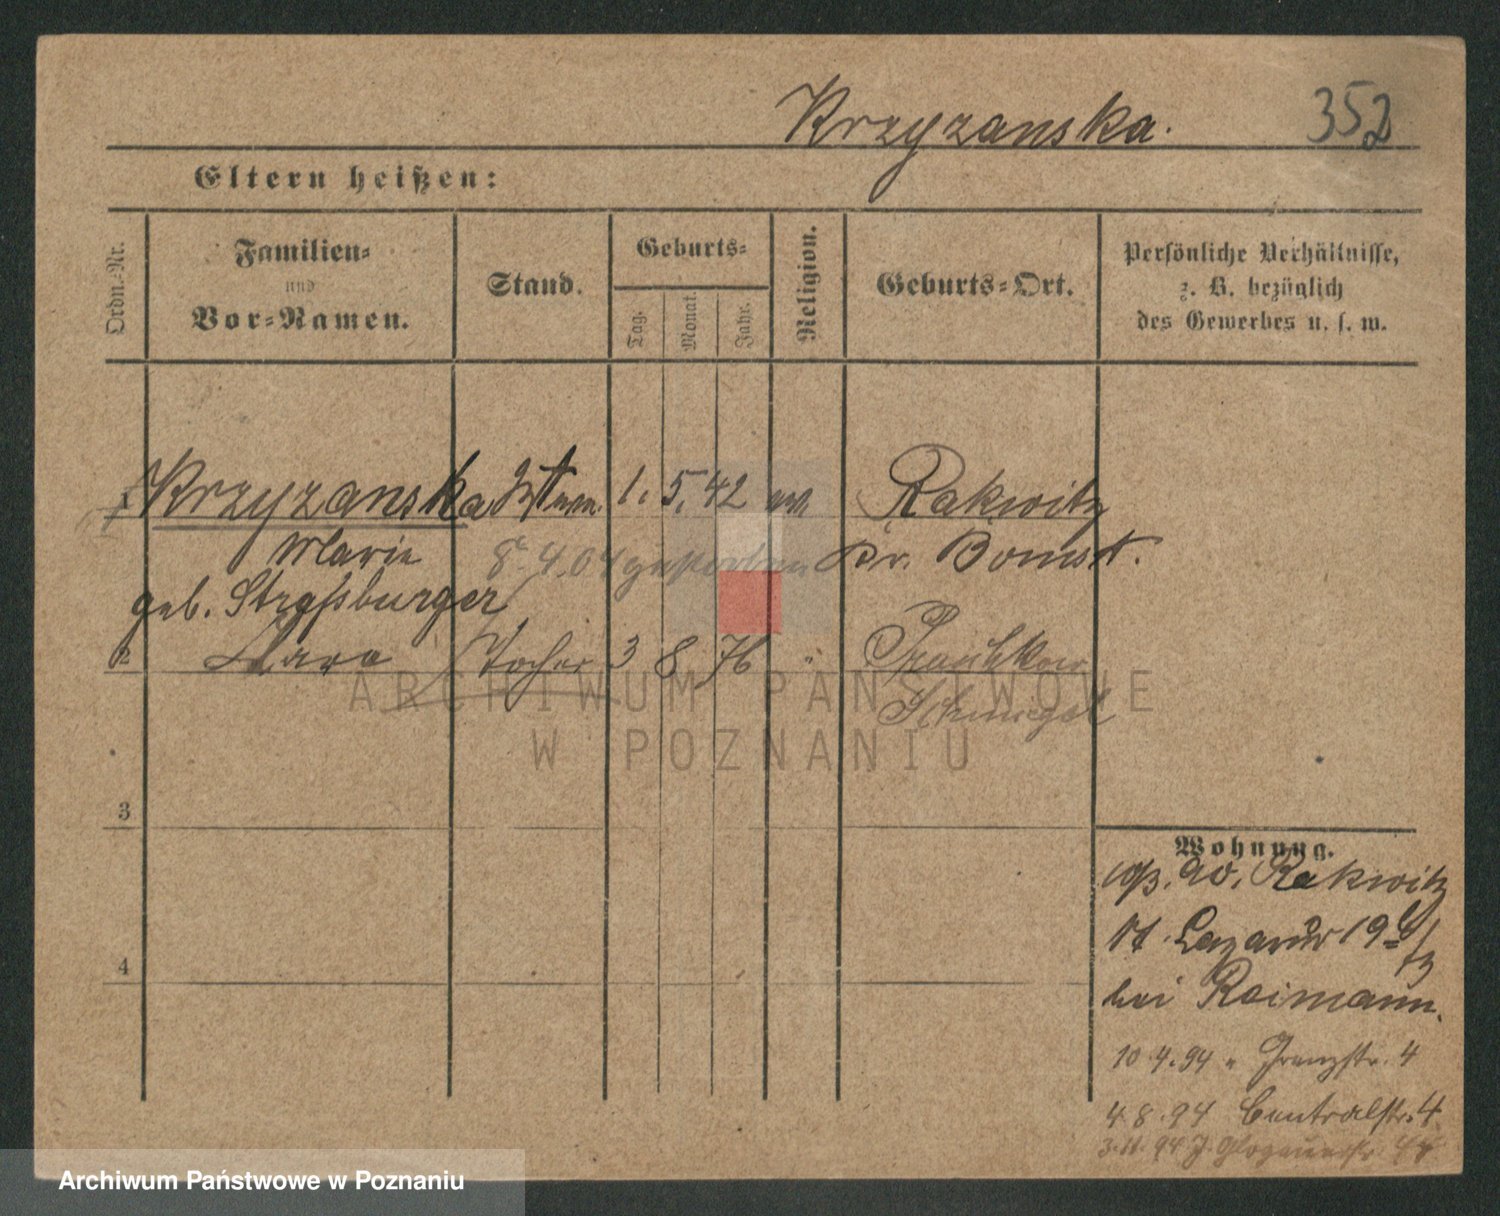 Krzyzanska. 352
Eltern heißen:
Ordn.-Nr.
Familien-
und
Vor-Namen.
Stand.
Geburts-
Tag.
Monat.
Jahr.
Religion.
Geburts-Ort.
Persönliche Verhältnisse,
z. B. bezüglich
des Gewerbes u. s. w.
1 Krzyzanska Wttwe. 1. 5. 42 ev. Rakwitz
Marie 8. 4. 04 gestorben Kr. Bomst.
geb. Straßburger
2 Tochter 3 8 76 "
Schmiegel
ARCHIWUM PAŃSTWOWE
W POZNANIU
3
Wohnung.
Rakwitz
St. Lazarus 19
4
bei Reimann.
10.4.94 " Franzstr. 4
4.8.94 Centralstr. 4
3.11.94 J. Glogauerstr.
Archiwum Państwowe w Poznaniu